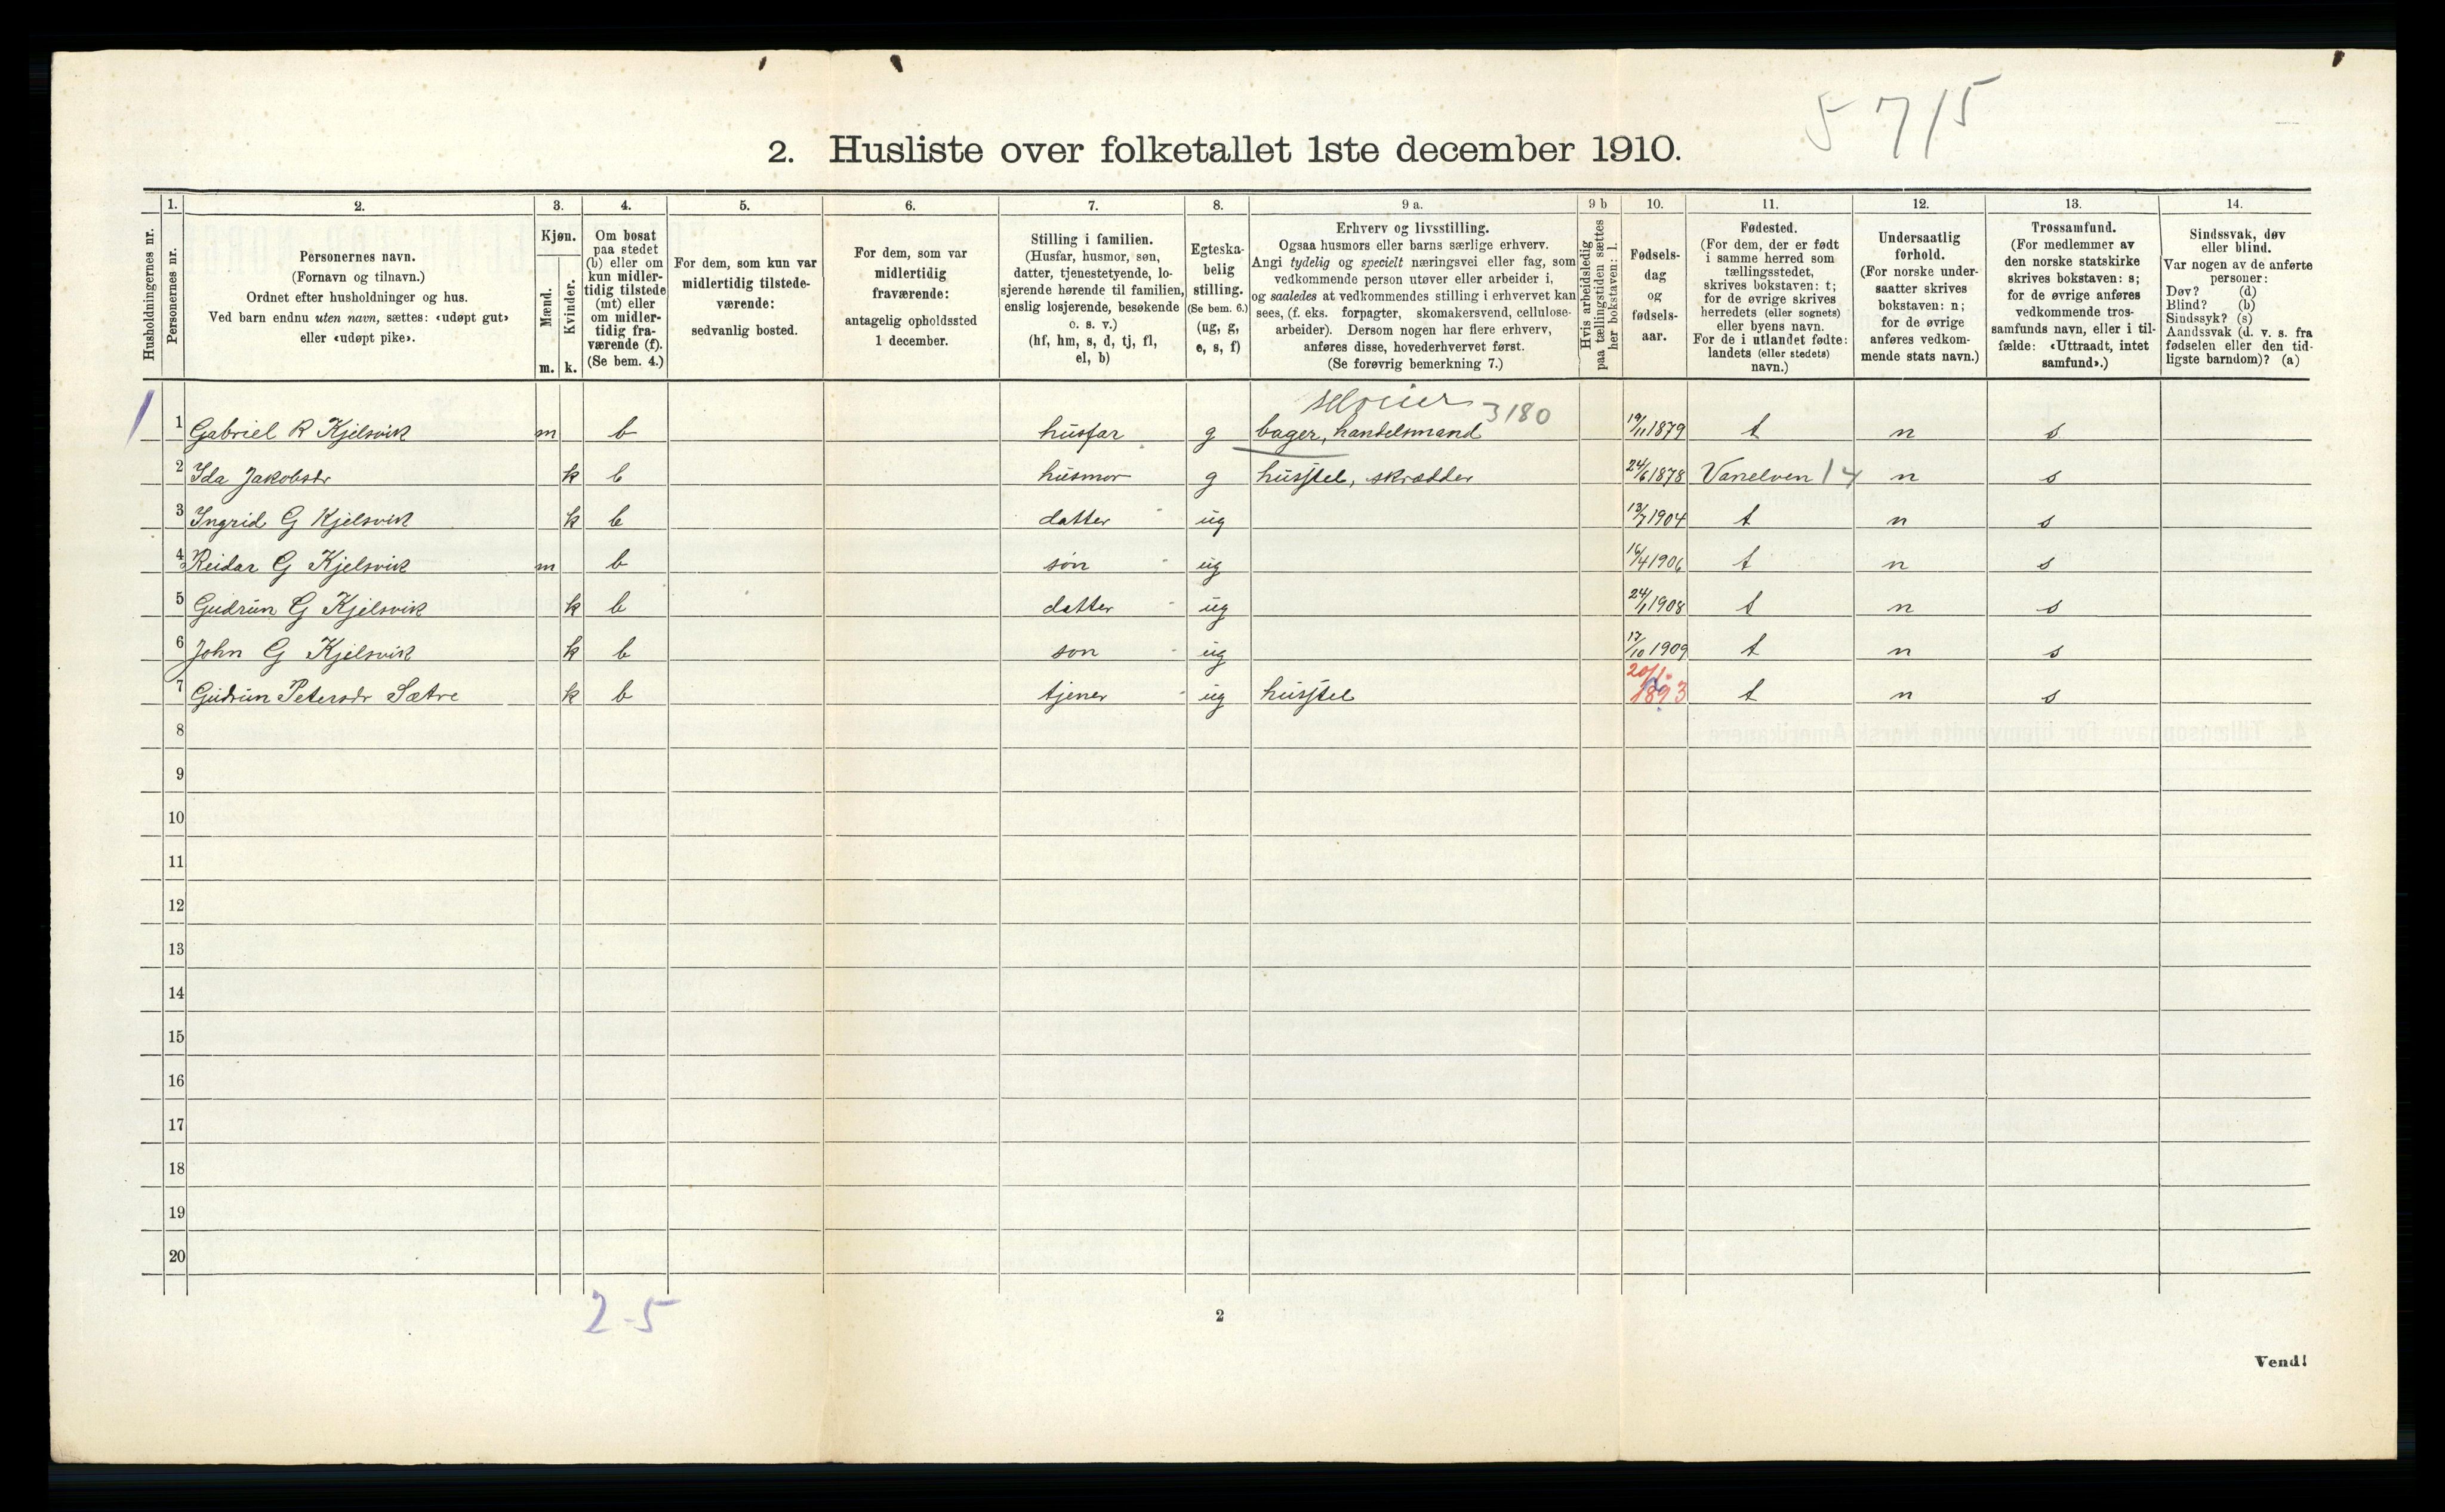 5715
2. Husliste over folketallet 1ste december 1910.
Husholdningernes nr.
1.
Personernes nr.
2.
Personernes navn.
(Fornavn og tilnavn.)
Ordnet efter husholdninger og hus.
Ved barn endnu uten navn, sættes: «udøpt gut»
eller «udøpt pike».
3.
Kjøn.
Mænd.
Kvinder.
m. k.
4.
Om bosat
paa stedet
(b) eller om
kun midler-
tidig tilstede
(mt) eller
om midler-
tidig fra-
værende (f).
(Se bem. 4.)
5.
For dem, som kun var
midlertidig tilstede-
værende:
sedvanlig bosted.
6.
For dem, som var
midlertidig
fraværende:
antagelig opholdssted
1 december.
7.
Stilling i familien.
(Husfar, husmor, søn,
datter, tjenestetyende, lo-
sjerende hørende til familien,
enslig losjerende, besøkende
o. s. v.)
(hf, hm, s, d, tj, fl,
el, b)
8.
Egteska-
belig
stilling.
(Se bem. 6.)
(ug, g,
e, s, f)
9 a.
Erhverv og livsstilling.
Ogsaa husmors eller barns særlige erhverv.
Angi tydelig og specielt næringsvei eller fag, som
vedkommende person utøver eller arbeider i,
og saaledes at vedkommendes stilling i erhvervet kan
sees, (f. eks. forpagter, skomakersvend, cellulose-
arbeider). Dersom nogen har flere erhverv,
anføres disse, hovederhvervet først.
(Se forøvrig bemerkning 7.)
9 b
Hvis arbeidsledig
paa tællingstiden sættes
her bokstaven: l.
10.
Fødsels-
dag
og
fødsels-
aar.
11.
Fødested.
(For dem, der er født
i samme herred som
tællingsstedet,
skrives bokstaven: t;
for de øvrige skrives
herredets (eller sognets)
eller byens navn.
For de i utlandet fødte:
landets (eller stedets)
navn.)
12.
Undersaatlig
forhold.
(For norske under-
saatter skrives
bokstaven: n;
for de øvrige
anføres vedkom-
mende stats navn.)
13.
Trossamfund.
(For medlemmer av
den norske statskirke
skrives bokstaven: s;
for de øvrige anføres
vedkommende tros-
samfunds navn, eller i til-
fælde: «Uttraadt, intet
samfund».)
14.
Sindssvak, døv
eller blind.
Var nogen av de anførte
personer:
Døv? (d)
Blind? (b)
Sindssyk? (s)
Aandssvak (d. v. s. fra
fødselen eller den tid-
ligste barndom)? (a)
selveier 3180
1 1 Gabriel R Kjelsvik m b husfar g bager, handelsmand 19/11 1879 t n s
2 Ida Jakobsdr k b husmor g husstel, skrædder 24/6 1878 Vanelven 14 n s
3 Ingrid G Kjelsvik k b datter ug 13/7 1904 t n s
4 Reidar G Kjelsvik m b søn ug 16/4 1906 t n s
5 Gudrun G Kjelsvik k b datter ug 24/1 1908 t n s
6 John G Kjelsvik k b son ug 17/10 1909 t n s
7 Gudrun Petersdr Sætre k b tjener ug husstel 20/1 1893 t n s
8
9
10
11
12
13
14
15
16
17
18
19
20
2-5
2
Vend!